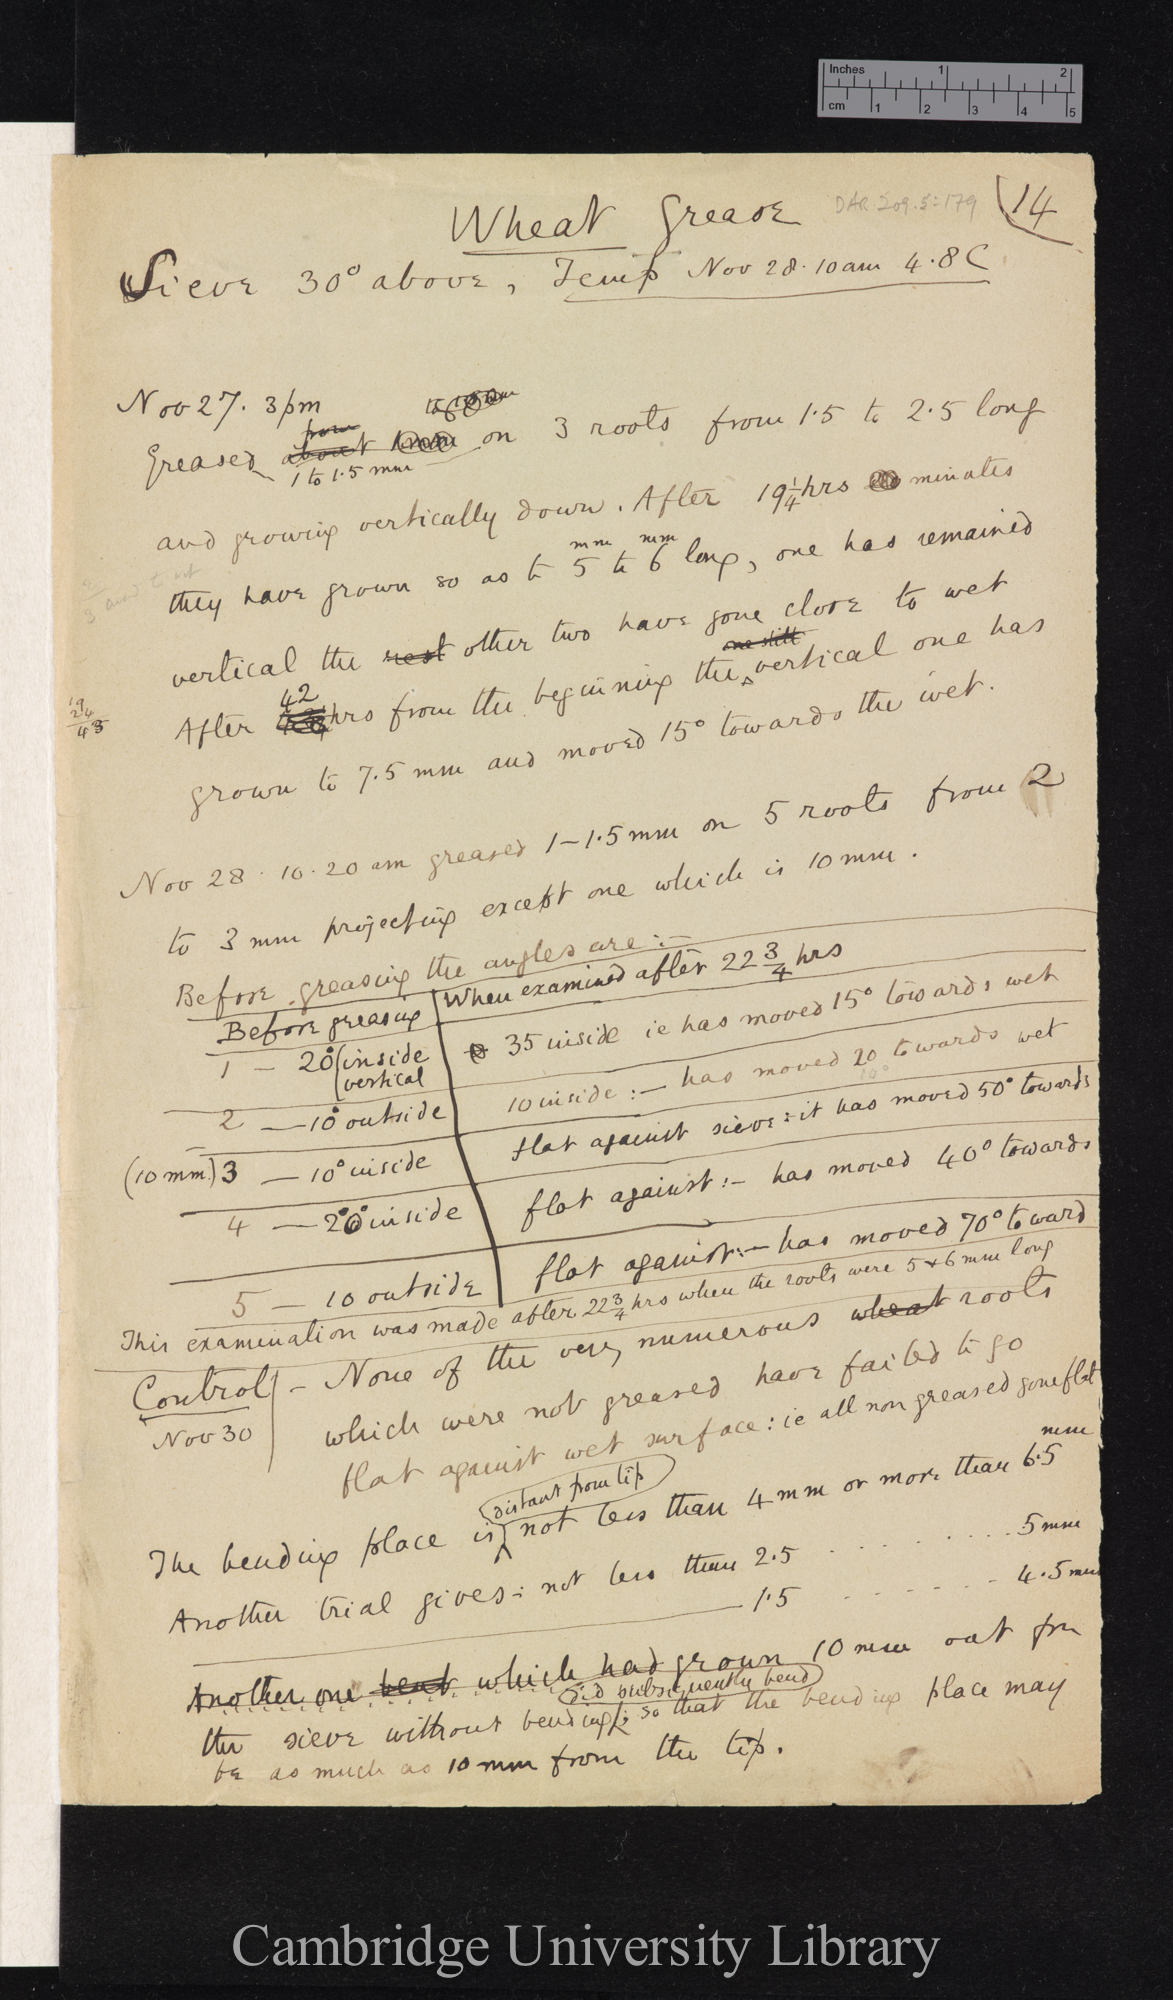 Inches 1 2
cm 1 2 3 4 5
Wheat Grease DAR 209.5:179 14
Sieve 30° above, Temp Nov 28. 10am 4.8 C
Nov 27. 3pm
from
Greased about on 3 roots from 1.5 to 2.5 long
1 to 1.5 mm
and growing vertically down. After 19 1/4 hrs minutes
mm mm
they have grown so as to 5 to 6 long, one has remained
vertical the rest other two have gone close to wet
42 one still
After hrs from the beginning the vertical one has
19
24
43
grown to 7.5 mm and moved 15° towards the wet.
Nov 28. 10.20 am greased 1–1.5 mm on 5 roots from 2
to 3 mm projecting except one which is 10 mm.
Before greasing the angles are:–
Before greasing When examined after 22 3/4 hrs
1 – 20° (inside vertical 35 inside ie has moved 15° towards wet
2 — 10° outside 10 inside:– has moved 20 towards wet
(10 mm.) 3 — 10° inside flat against sieve: it has moved 50° towards
4 — 20° inside flat against:– has moved 40° towards
5 — 10 outside flat against:– has moved 70° toward
This examination was made after 22 3/4 hrs when the roots were 5 & 6 mm long
Control – None of the very numerous wheat roots
Nov 30 which were not greased have failed to go
flat against wet surface: ie all non greased gone flat
distant from tip mm
The bending place is not less than 4 mm or more than 6.5
Another trial gives: not less than 2.5 . . . . . . . 5 mm
1.5 - - - - - - 4.5 mm
Another one bent which had grown 10 mm out fm
did subsequently bend
the sieve without bending; so that the bending place may
be as much as 10 mm from the tip.
Cambridge University Library